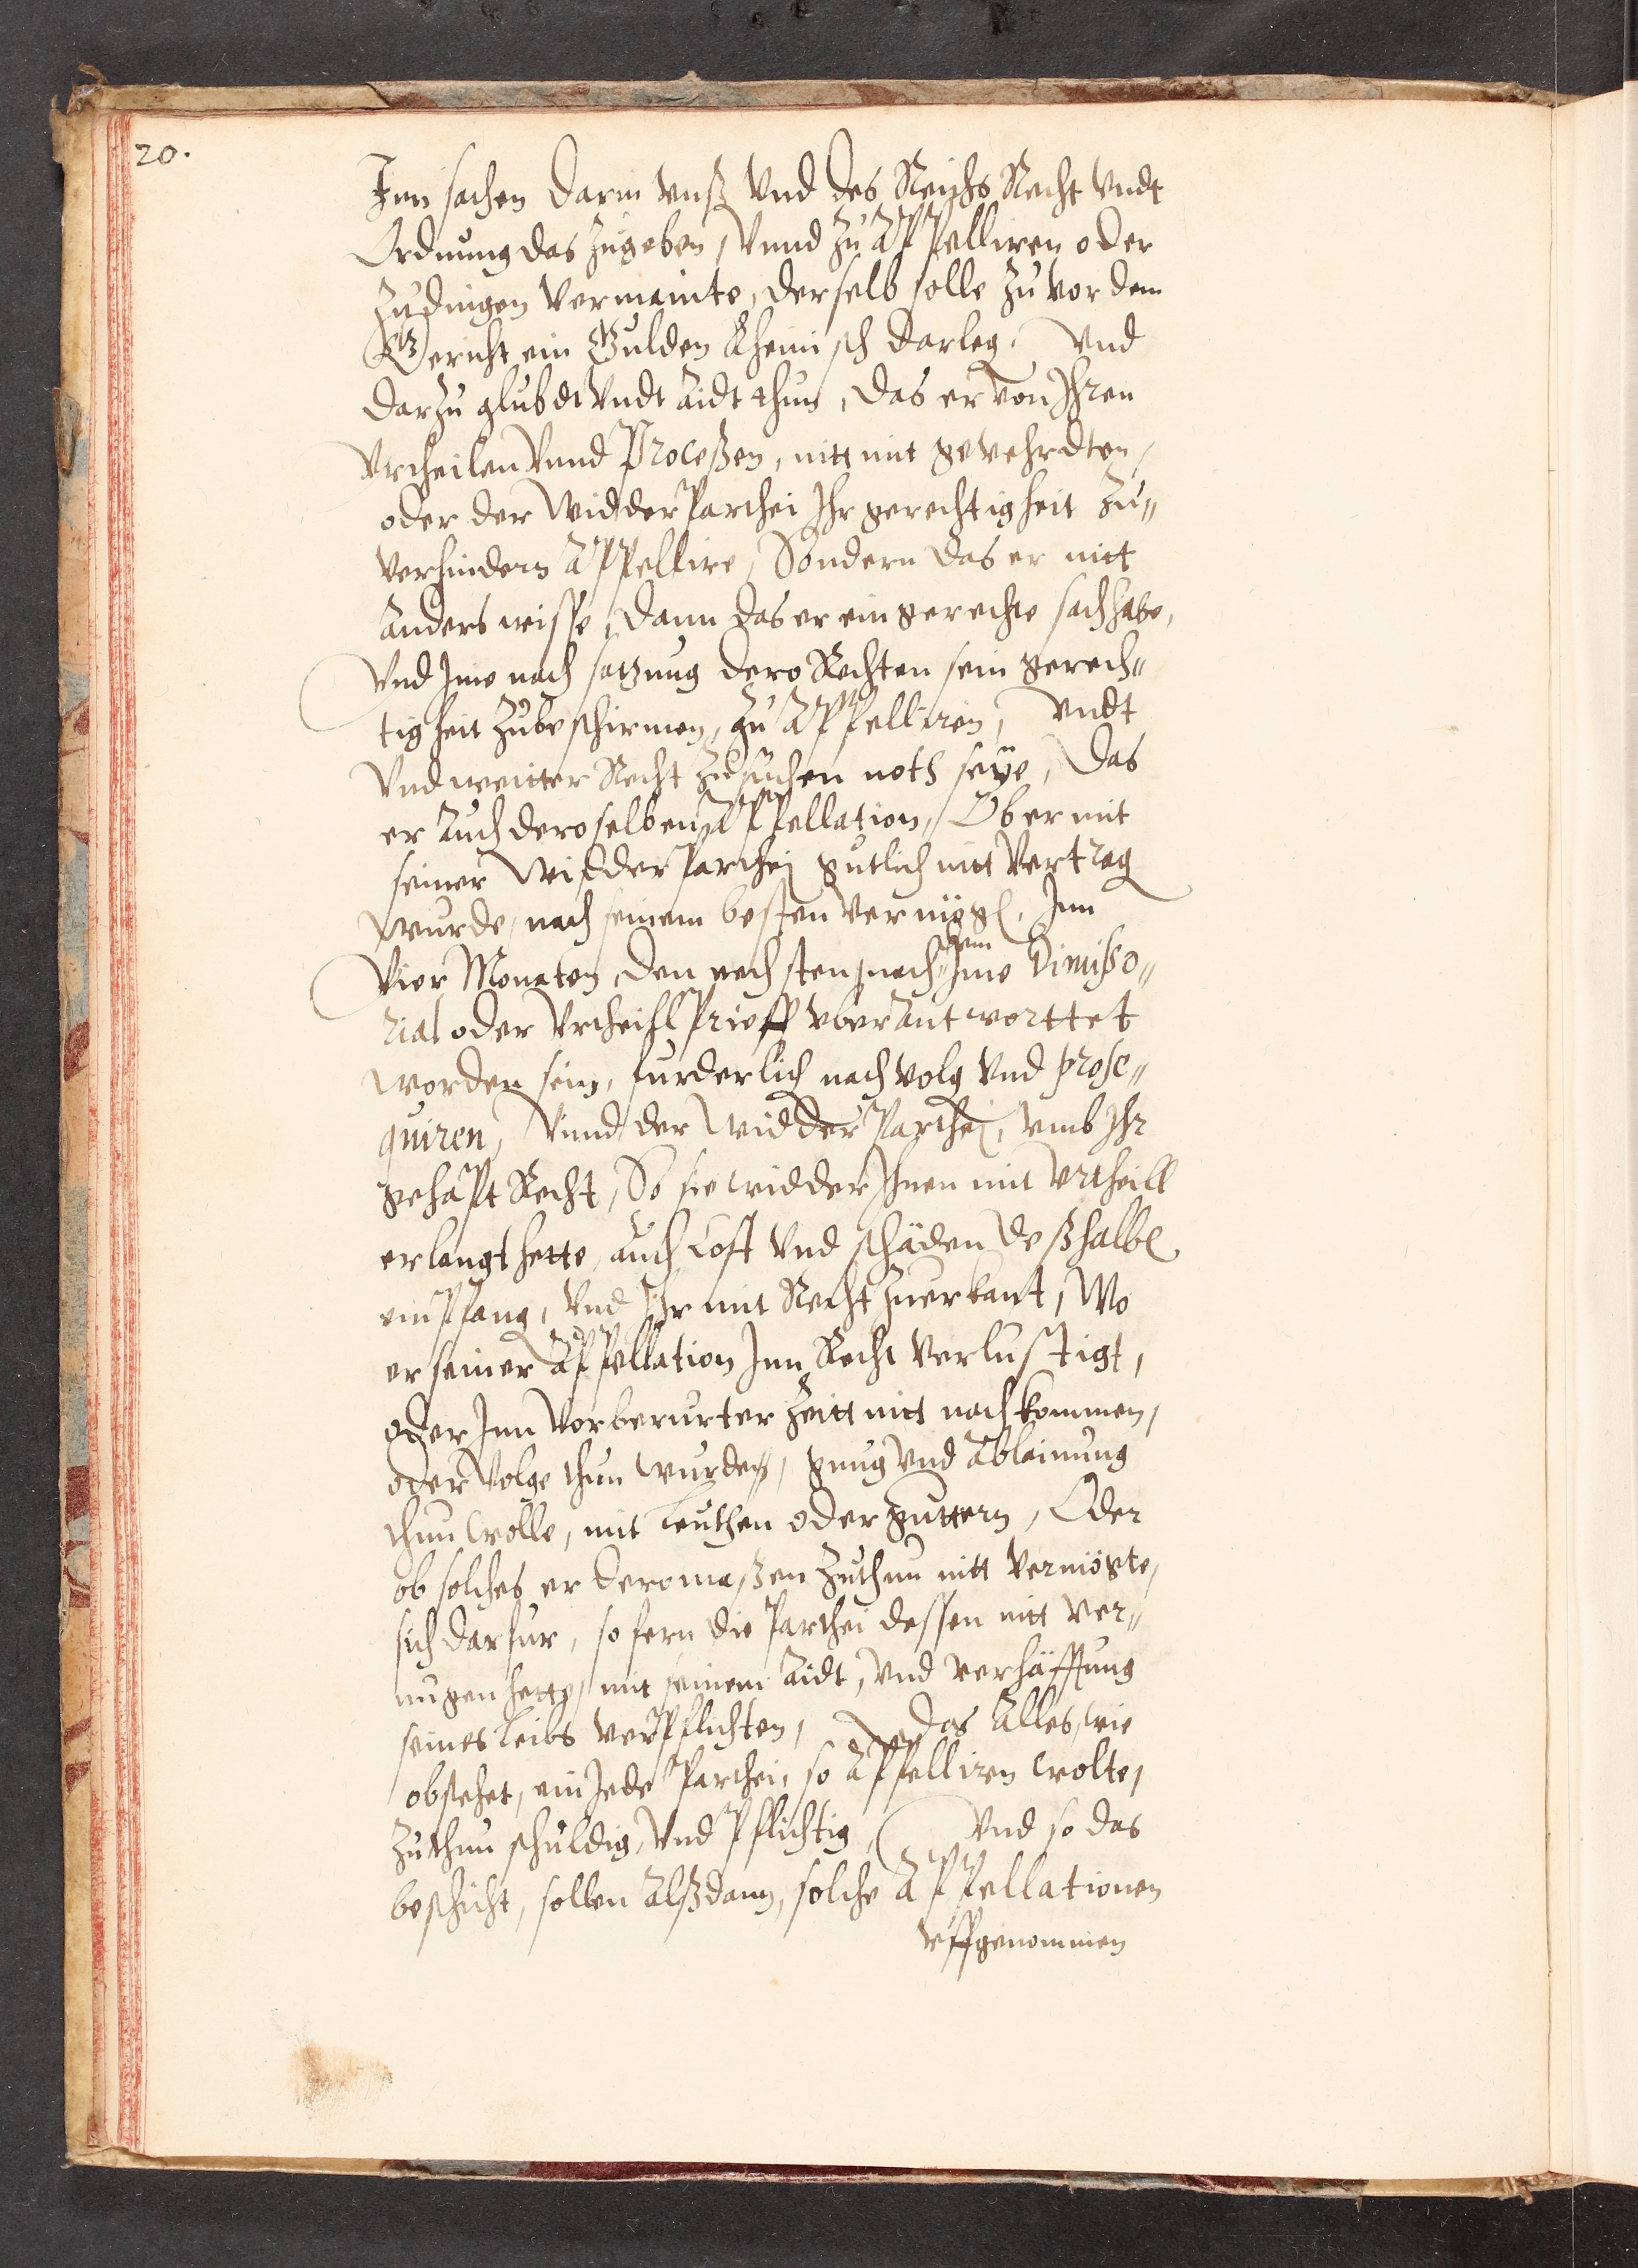 20.
Inn sachen darin vnß vnd des Reichs Recht vndt
Ordnung das zugeben, Vnnd zu Appelliren oder
Zudingen vermainte, derselb solle zuvor dem
Gericht ein Gulden Rheinisch darleg. Vnd
darzu glubdt Vndt Aidt thun, das er von Ihren
Vrtheilen Vnnd Proceßen, nitt mit gevehrdten,
oder der Widder Parthei Ihr gerechtigheit Zu„
verhindern Appellire, Sondern das er nitt
Anders wisse, Dann das er ein gerechte sach habe,
Vnd Ime nach satzung dero Rechten sein gerech„
tigheit zubeschirmen, zu Appelliren, Vndt
Vnd weitter Recht zusuchen noth seye, Das
er Auch deroselben Appellation, Ob er mit
seiner Widder Parthei gutlich nitt Vertrag
wurde, nach seinem besten Vermögl. Inn
Vier Monaten, den nechsten, nach„dem Ime Dimißo„
rial oder Vrtheihl Prieff vberantworttet
worden sein, furderlich nachvolg Vnd prose„
quiren, Vnnd der Widder Parthei, vmb Ihr
gehapt Recht, So sie widder Ihnen mit Vrtheill
erlangt hette, auch Cost Vnd schäden deßhalbe
einpfang, Vnd Ihr mit Recht Zuerkant, Wo
er seiner Appellation Inn Recht Verlustigt,
oder Inn Vorberurter Zeitt nitt nachkommen,
oder Volge thun wurden, gnug Vnd Ablainung
thun wolle, mit Leuthen oder guttern, Oder
ob solches er deromaßen Zuthun nitt Vermögte,
sich darfur, sofern die Parthei dessen nitt Ver„
nugen hette, mit seinem Aidt, Vnd Verhäfftung
seines Leibs Verpflichten, Das Alles, wie
obstehet, ein Jede Parthei, so Appelliren wolte,
Zuthun schuldig, Vnd Pflichtig, Vnd so das
beschicht, sollen Alßdann, solche Appellationen
Vffgenommen